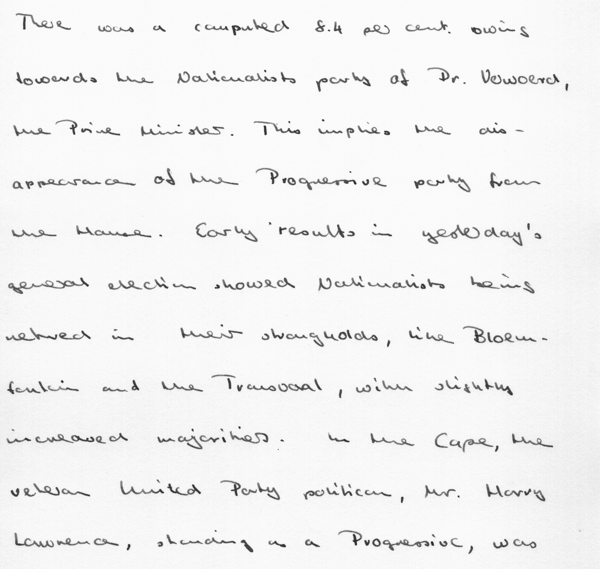 There was a computed 8.4 per cent. swing
towards the Nationalists party of Dr. Verwoerd,
the Prime Minister. This implies the dis-
appearance of the Progressive party from
the House. Early results in yesterday's
general election showed Nationalists being
returned in their strongholds, like Bloem-
fontein and the Transvaal, with slightly
increased majorities. In the Cape, the
veteran United Party politican, Mr. Harry
Lawrence, standing as a Progressive, was